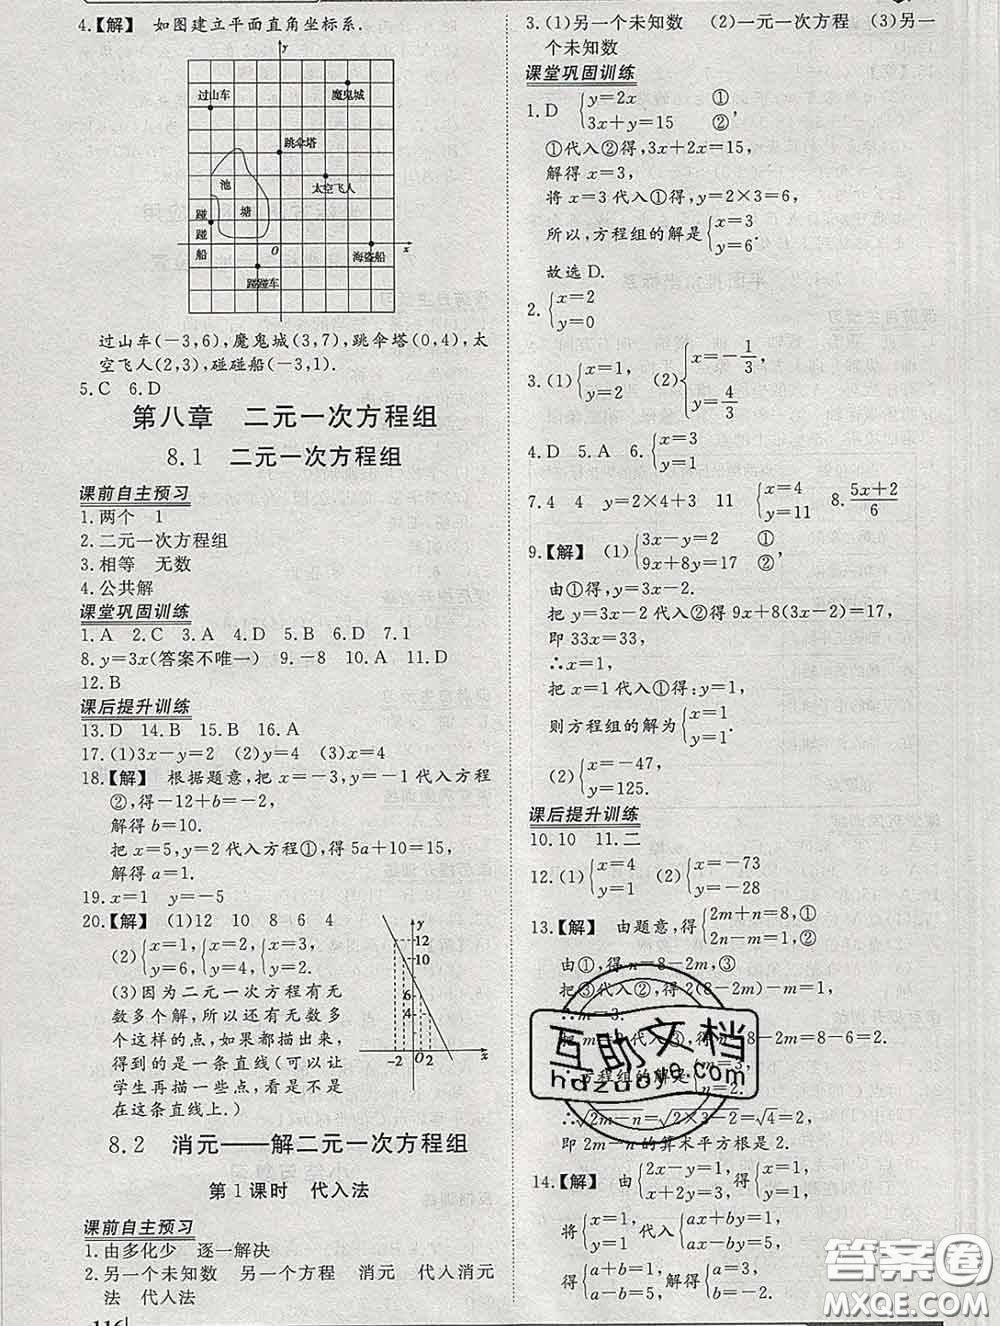 4.【解】 如图建立平面直角坐标系.
y
过山车
魔鬼城
跳伞塔
池
太空飞人
碰
塘
碰
船
O
海盗船
x
碰碰车
过山车(-3,6),魔鬼城(3,7),跳伞塔(0,4),太
空飞人(2,3),碰碰船(-3,1).
5.C 6.D
第八章 二元一次方程组
8.1 二元一次方程组
课前自主预习
1.两个 1
2.二元一次方程组
3.相等 无数
4.公共解
课堂巩固训练
1.A 2.C 3.A 4.D 5.B 6.D 7.1
8.y=3x(答案不唯一) 9.-8 10.A 11.D
12.B
课后提升训练
13.D 14.B 15.B 16.A
17.(1)3x-y=2 (2)y=4 (3)x=4
18.【解】 根据题意,把 x=-3,y=-1 代入方程
②,得-12+b=-2,
解得 b=10.
把 x=5,y=2 代入方程①,得 5a+10=15,
解得 a=1.
19.x=1 y=-5
20.【解】 (1)12 10 8 6 4
(2){x=1, {x=2, {x=3,
y=6. y=4. y=2.
(3)因为二元一次方程有无
数多个解,所以有无数多
个这样的点,如果都描出来,
得到的是一条直线(可以让
学生再描一些点,看是否都
在这条直线上.)
y
12
10
6
4
-2
2
x
8.2 消元——解二元一次方程组
第1课时 代入法
课前自主预习
1.由多化少 逐一解决
2.另一个未知数 另一个方程 消元 代入消元
法 代入法
116
3.(1)另一个未知数 (2)一元一次方程 (3)另一
个未知数
课堂巩固训练
1.D {y=2x ①
3x+y=15 ②,
①代入②得,3x+2x=15,
解得 x=3,
将 x=3 代入①得,y=2×3=6,
所以,方程组的解是{x=3
y=6.
故选 D.
2.{x=2
y=0
3.(1){x=1,
y=2
(2){x=-1/3
y=4/3
4.D 5.A 6.{x=3
y=1
7.4 4 y=2×4+3 11 {x=4
y=11
8.(5x+2)/6
9.【解】 (1){3x-y=2 ①
9x+8y=17 ②,
由①得,y=3x-2.
把 y=3x-2 代入②得 9x+8(3x-2)=17,
即 33x=33,
∴x=1,
把 x=1 代入①得:y=1,
则方程组的解为{x=1
y=1.
(2){x=-47,
y=125.
课后提升训练
10.10 11.二
12.(1){x=4
y=1
(2){x=-73
y=-28
13.【解】 由题意,得{2m+n=8,①
2n-m=1,②
由①,得 n=8-2m,③
把③代入②,得 2(8-2m)-m=1,
∴m=3.
把 m 代入③,得 n=8-2m=8-6=2.
∴方程组的解是
n=2.
∴√2m-n=√2×3-2=√4=2,
即 2m-n 的算术平方根是 2.
14.【解】 由{2x-y=1,
3x+y=4,
得{x=1,
y=1,
将{x=1,
y=1
代入{ax+by=1,
ax-by=5,
得{a+b=1,
a-b=5.
解得{a=3,
互助文档
hdzuoye.com
答案圈
MXQE.COM